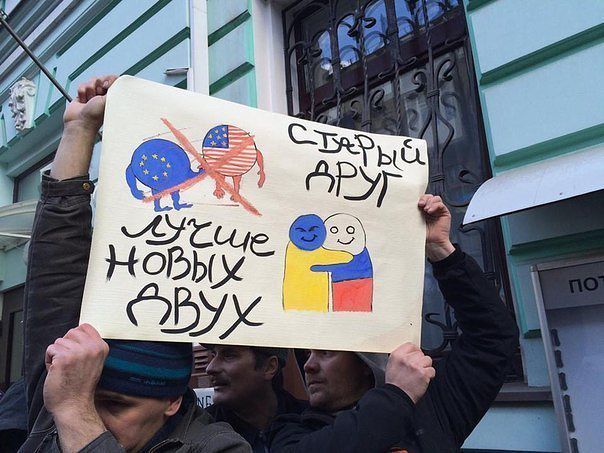 СТАРЫЙ
ДРУГ
ЛУЧШЕ
НОВЫХ
ДВУХ
ПОТ